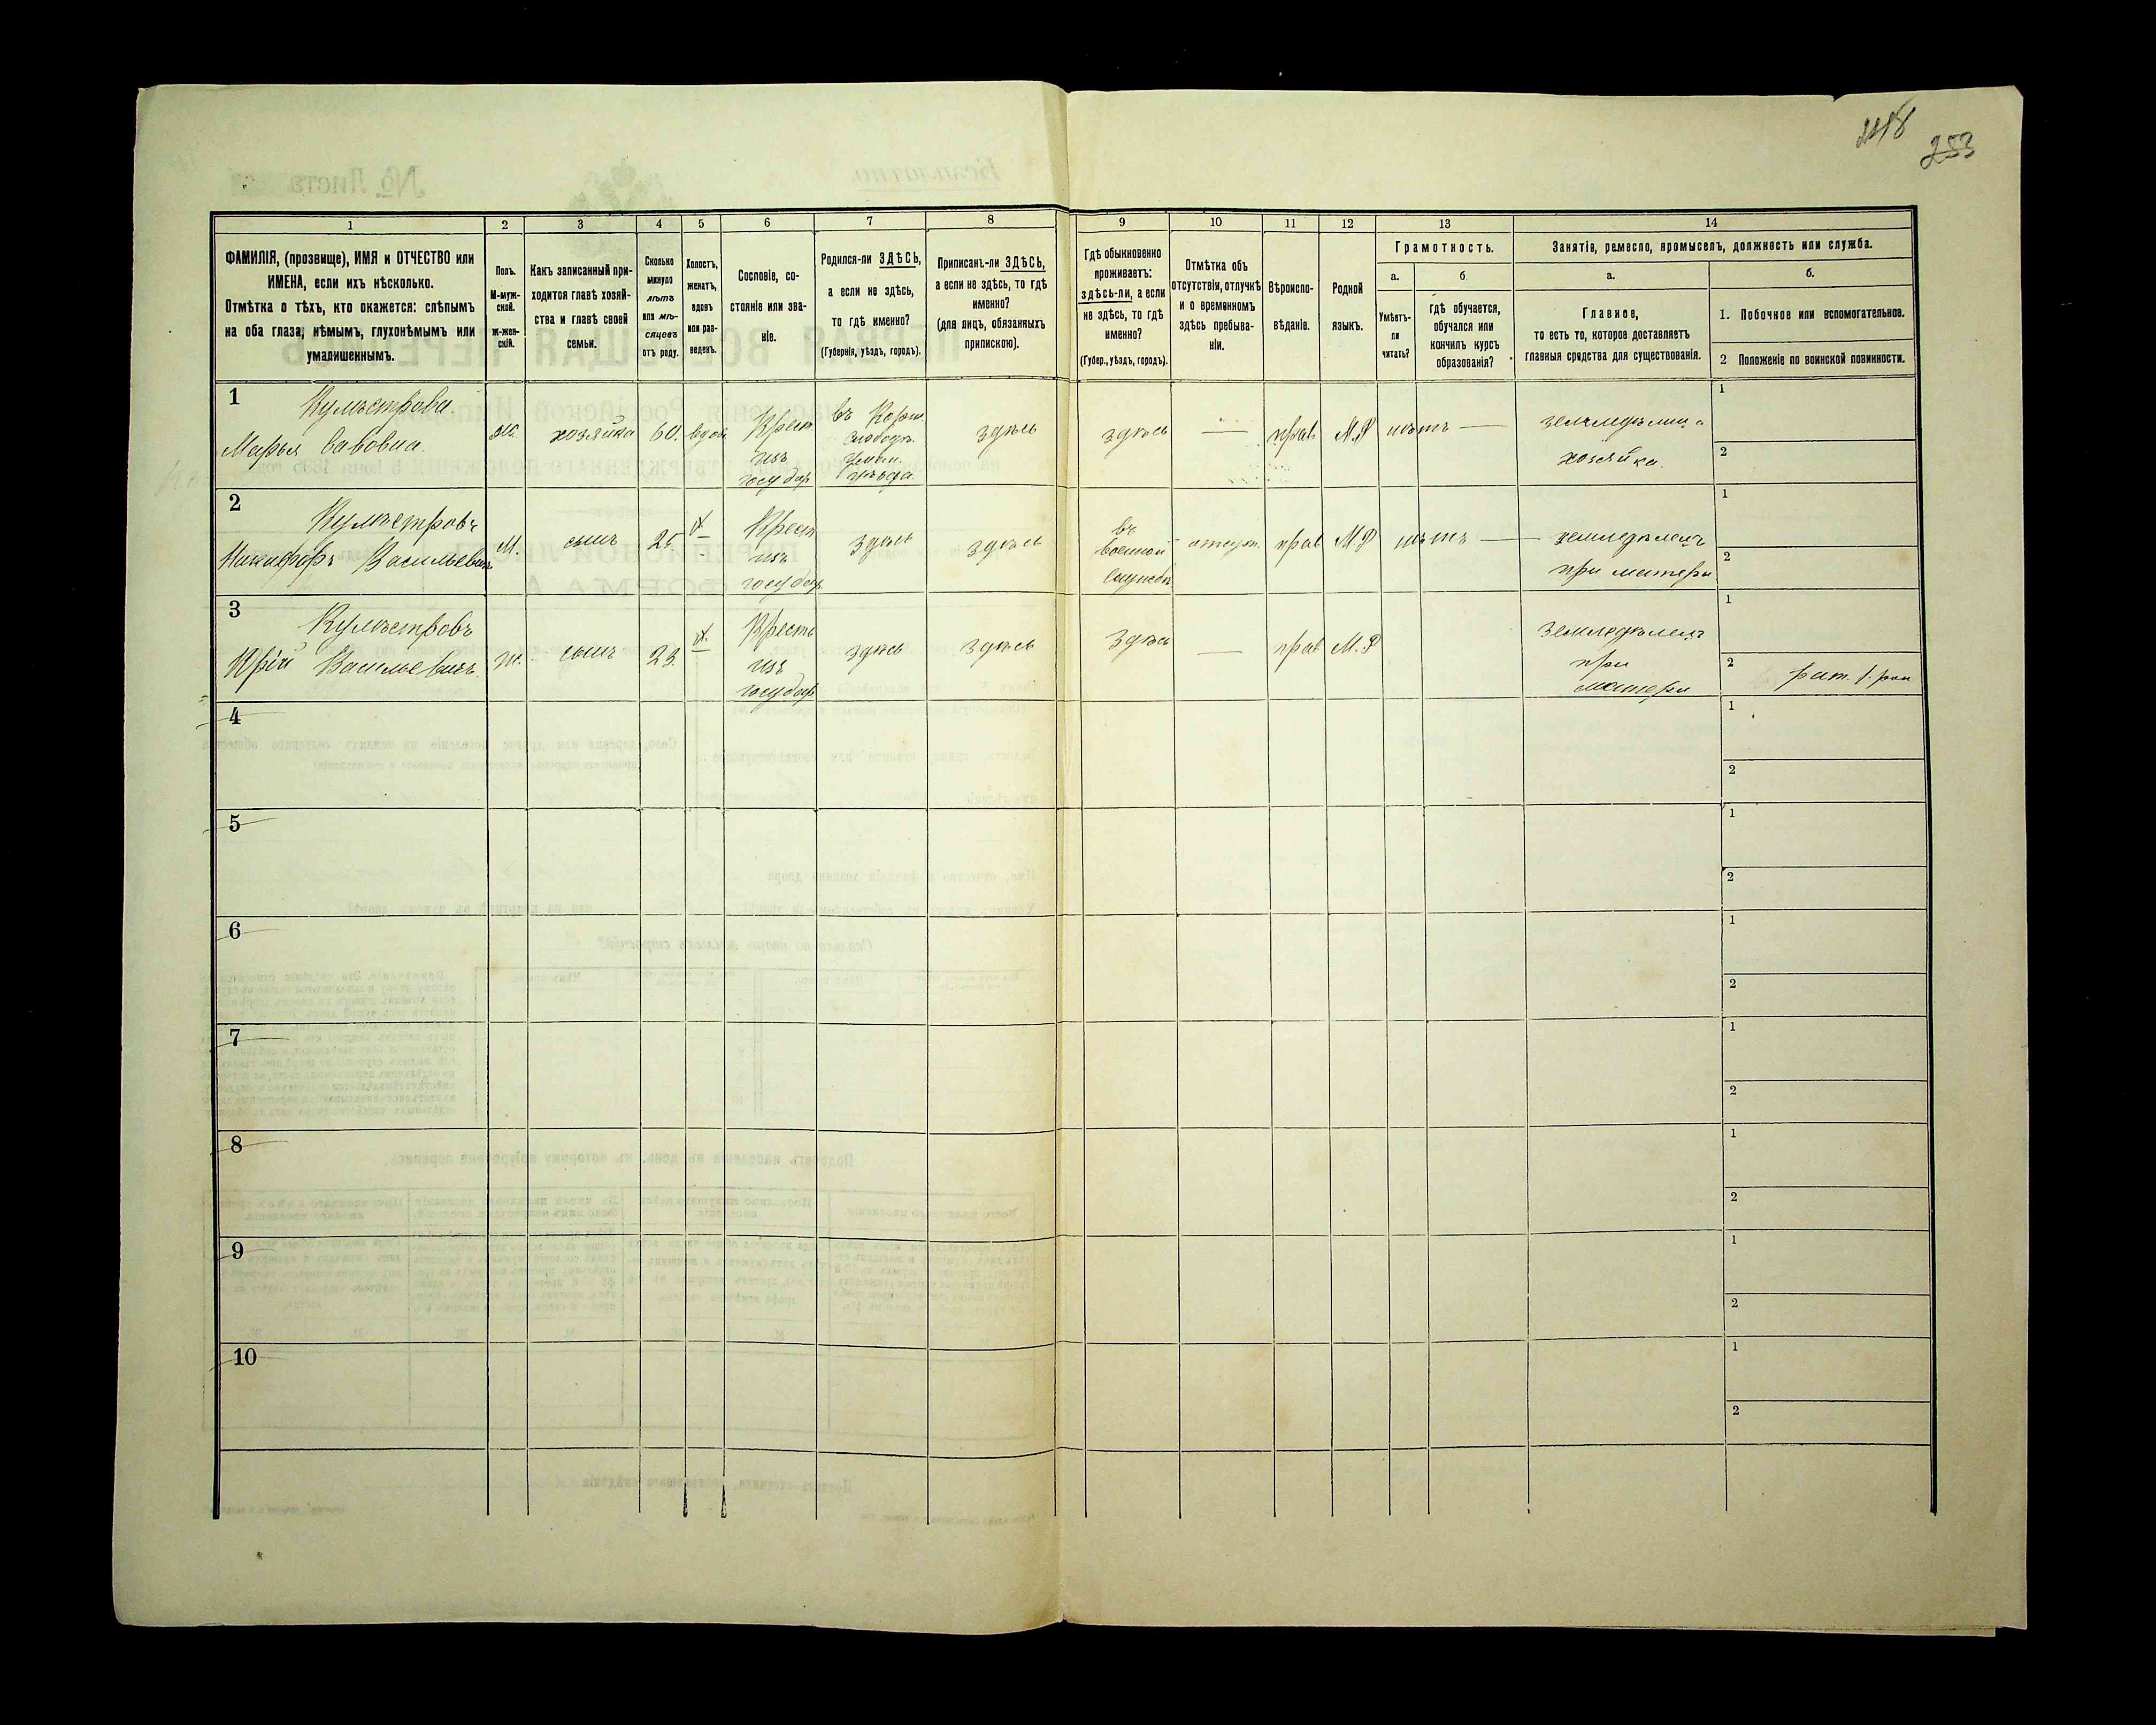 253
1 2 3 4 5 6 7 8 9 10 11 12 13 14
ФАМИЛІЯ, (прозвище), ИМЯ и ОТЧЕСТВО или
ИМЕНА, если ихъ нѣсколько.
Отмѣтка о тѣхъ, кто окажется: слѣпымъ
на оба глаза, нѣмымъ, глухонѣмымъ или
умалишеннымъ.
Полъ.
М-муж-
ской.
Ж-жен-
скій.
Какъ записанный при-
ходится главѣ хозяй-
ства и главѣ своей
семьи.
Сколько
минуло
лѣтъ
или мѣ-
сяцевъ
отъ роду.
Холостъ,
женатъ,
вдовъ
или раз-
веденъ.
Сословіе, со-
стояніе или зва-
ніе.
Родился-ли ЗДѢСЬ,
а если не здѣсь,
то гдѣ именно?
(Губернія, уѣздъ, городъ).
Приписанъ-ли ЗДѢСЬ,
а если не здѣсь, то гдѣ
именно?
(для лицъ, обязанныхъ
припискою).
Гдѣ обыкновенно
проживаетъ:
здѣсь-ли, а если
не здѣсь, то гдѣ
именно?
(Губер., уѣздъ, городъ).
Отмѣтка объ
отсутствіи, отлучкѣ
и о временномъ
здѣсь пребыва-
ніи.
Вѣроиспо-
вѣданіе.
Родной
языкъ.
Грамотность.
а.
Умѣетъ-
ли
читать?
б.
гдѣ обучается,
обучался или
кончилъ курсъ
образованія?
Занятіе, ремесло, промыселъ, должность или служба.
а.
Главное,
то есть то, которое доставляетъ
главныя средства для существованія.
б.
1. Побочное или вспомогательное.
2 Положеніе по воинской повинности.
1
Марья Савовна
ж.
хозяйка
60.
вдов.
Крест
изъ
государ
въ
Слободѣ
уѣзда.
здѣсь
здѣсь
—
прав
М.Р
нѣтъ —
земледѣлица
хозяйка.
1
2
2
Никифоръ Васильевичъ
М.
сынъ
25
х.
Крест
изъ
государ
здѣсь
здѣсь
въ
военной
службѣ
отсут.
прав
М.Р
нѣтъ —
земледѣлецъ
при матери
1
2
3
Юрій Васильевичъ.
сынъ
23.
х.
Крестъ
изъ
государ
здѣсь
здѣсь
здѣсь
—
прав
М.Р
земледѣлецъ
при
матери
1
2 рат. 1. раз
4
1
2
5
1
2
6
1
2
7
1
2
8
1
2
9
1
2
10
1
2